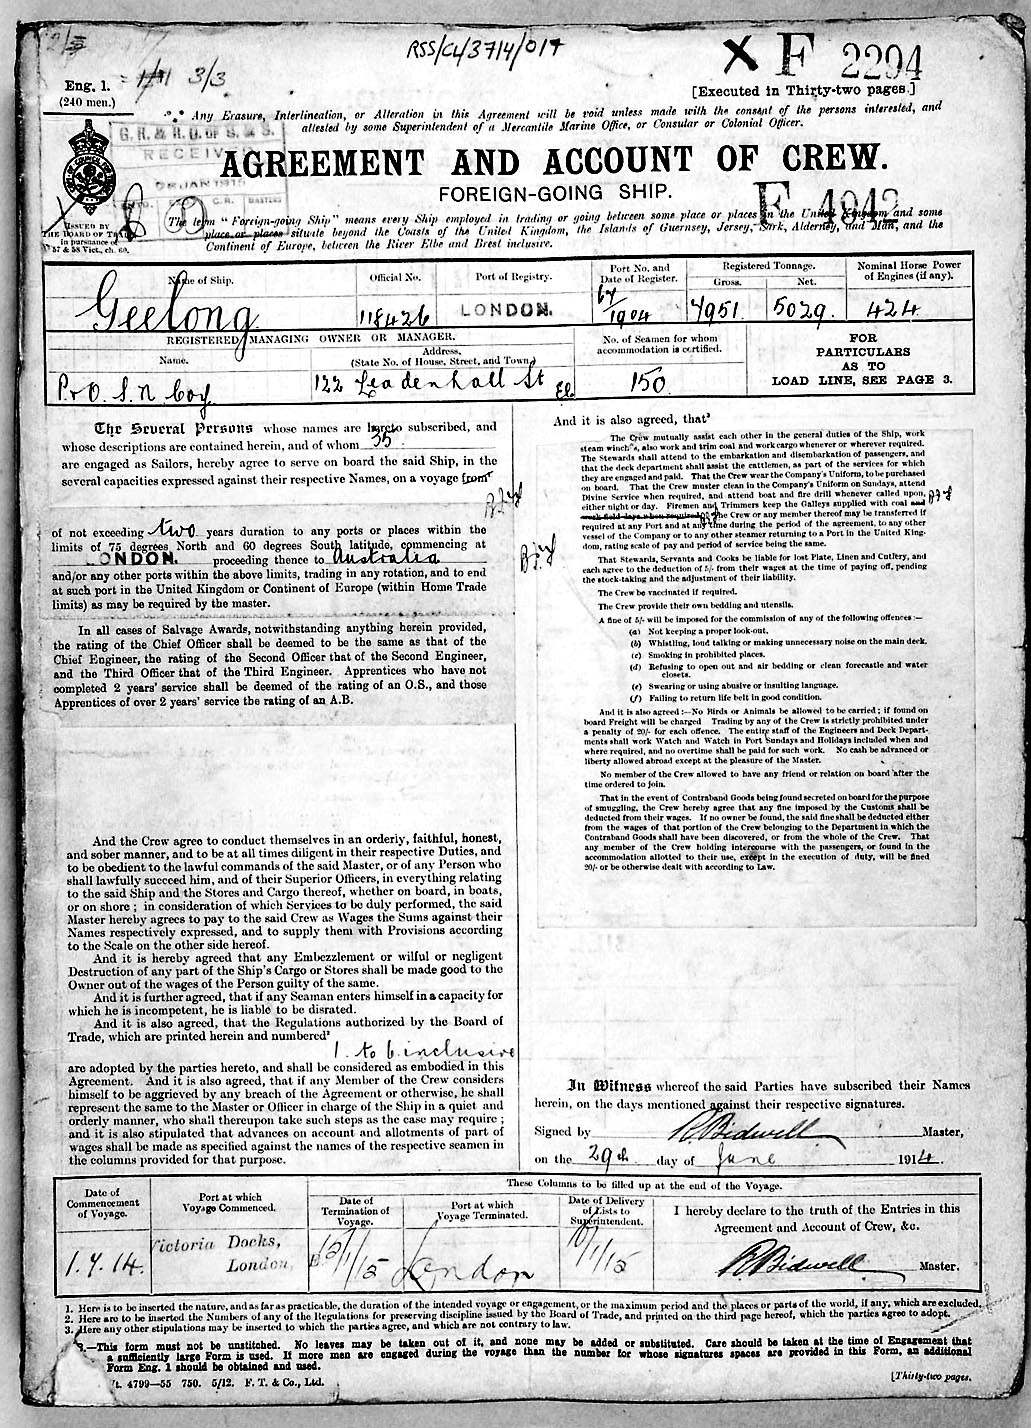 RSS/CL/3714/017
3/3
X F 2294
Eng. 1.
(240 men.)
[Executed in Thirty-two pages.]
Any Erasure, Interlineation, or Alteration in this Agreement will be void unless made with the consent of the persons interested, and
attested by some Superintendent of a Mercantile Marine Office, or Consular or Colonial Officer.
RECEIVED
JAN 1915
AGREEMENT AND ACCOUNT OF CREW.
FOREIGN-GOING SHIP.
F 4942
ISSUED BY
THE BOARD OF TRADE
in pursuance of
57 & 58 Vict., ch. 60.
The term "Foreign-going Ship" means every Ship employed in trading or going between some place or places in the United Kingdom and some
place or places situate beyond the Coasts of the United Kingdom, the Islands of Guernsey, Jersey, Sark, Alderney, and Man, and the
Continent of Europe, between the River Elbe and Brest inclusive.
Name of Ship.
Official No.
Port of Registry.
Port No. and
Date of Register.
Registered Tonnage.
Gross.
Net.
Nominal Horse Power
of Engines (if any).
Geelong
118426
LONDON.
67/1904
7951
5029.
424
REGISTERED MANAGING OWNER OR MANAGER.
Name.
Address.
(State No. of House, Street, and Town)
No. of Seamen for whom
accommodation is certified.
FOR
PARTICULARS
AS TO
LOAD LINE, SEE PAGE 3.
P & O. S. N. Coy
122 Leadenhall St
150
The Several Persons whose names are hereto subscribed, and
whose descriptions are contained herein, and of whom 35
are engaged as Sailors, hereby agree to serve on board the said Ship, in the
several capacities expressed against their respective Names, on a voyage from¹
of not exceeding two years duration to any ports or places within the
limits of 75 degrees North and 60 degrees South latitude, commencing at
LONDON. proceeding thence to Australia
and/or any other ports within the above limits, trading in any rotation, and to end
at such port in the United Kingdom or Continent of Europe (within Home Trade
limits) as may be required by the master.
In all cases of Salvage Awards, notwithstanding anything herein provided,
the rating of the Chief Officer shall be deemed to be the same as that of the
Chief Engineer, the rating of the Second Officer that of the Second Engineer,
and the Third Officer that of the Third Engineer. Apprentices who have not
completed 2 years' service shall be deemed of the rating of an O.S., and those
Apprentices of over 2 years' service the rating of an A.B.
And the Crew agree to conduct themselves in an orderly, faithful, honest,
and sober manner, and to be at all times diligent in their respective Duties, and
to be obedient to the lawful commands of the said Master, or of any Person who
shall lawfully succeed him, and of their Superior Officers, in everything relating
to the said Ship and the Stores and Cargo thereof, whether on board, in boats,
or on shore; in consideration of which Services to be duly performed, the said
Master hereby agrees to pay to the said Crew as Wages the Sums against their
Names respectively expressed, and to supply them with Provisions according
to the Scale on the other side hereof.
And it is hereby agreed that any Embezzlement or wilful or negligent
Destruction of any part of the Ship's Cargo or Stores shall be made good to the
Owner out of the wages of the Person guilty of the same.
And it is further agreed, that if any Seaman enters himself in a capacity for
which he is incompetent, he is liable to be disrated.
And it is also agreed, that the Regulations authorized by the Board of
Trade, which are printed herein and numbered²
1. to 6. inclusive
are adopted by the parties hereto, and shall be considered as embodied in this
Agreement. And it is also agreed, that if any Member of the Crew considers
himself to be aggrieved by any breach of the Agreement or otherwise, he shall
represent the same to the Master or Officer in charge of the Ship in a quiet and
orderly manner, who shall thereupon take such steps as the case may require;
and it is also stipulated that advances on account and allotments of part of
wages shall be made as specified against the names of the respective seamen in
the columns provided for that purpose.
And it is also agreed, that³
The Crew mutually assist each other in the general duties of the Ship, work
steam winches, also work and trim coal and work cargo whenever or wherever required.
The Stewards shall attend to the embarkation and disembarkation of passengers, and
that the deck department shall assist the cattlemen, as part of the services for which
they are engaged and paid. That the Crew wear the Company's Uniform, to be purchased
on board. That the Crew muster clean in the Company's Uniform on Sundays, attend
Divine Service when required, and attend boat and fire drill whenever called upon,
either night or day. Firemen and Trimmers keep the Galleys supplied with coal and
work field days when required. The Crew or any member thereof may be transferred if
required at any Port and at any time during the period of the agreement, to any other
vessel of the Company or to any other steamer returning to a Port in the United King-
dom, rating scale of pay and period of service being the same.
That Stewards, Servants and Cooks be liable for lost Plate, Linen and Cutlery, and
each agree to the deduction of 5/- from their wages at the time of paying off, pending
the stock-taking and the adjustment of their liability.
The Crew be vaccinated if required.
The Crew provide their own bedding and utensils.
A fine of 5/- will be imposed for the commission of any of the following offences:—
(a) Not keeping a proper look-out.
(b) Whistling, loud talking or making unnecessary noise on the main deck.
(c) Smoking in prohibited places.
(d) Refusing to open out and air bedding or clean forecastle and water
closets.
(e) Swearing or using abusive or insulting language.
(f) Failing to return life belt in good condition.
And it is also agreed:—No Birds or Animals be allowed to be carried; if found on
board Freight will be charged Trading by any of the Crew is strictly prohibited under
a penalty of 20/- for each offence. The entire staff of the Engineers and Deck Depart-
ments shall work Watch and Watch in Port Sundays and Holidays included when and
where required, and no overtime shall be paid for such work. No cash be advanced or
liberty allowed abroad except at the pleasure of the Master.
No member of the Crew allowed to have any friend or relation on board after the
time ordered to join.
That in the event of Contraband Goods being found secreted on board for the purpose
of smuggling, the Crew hereby agree that any fine imposed by the Customs shall be
deducted from their wages. If no owner be found, the said fine shall be deducted either
from the wages of that portion of the Crew belonging to the Department in which the
Contraband Goods shall have been discovered, or from the whole of the Crew. That
any member of the Crew holding intercourse with the passengers, or found in the
accommodation allotted to their use, except in the execution of duty, will be fined
20/- or be otherwise dealt with according to Law.
In Witness whereof the said Parties have subscribed their Names
herein, on the days mentioned against their respective signatures.
Signed by R Bidwell Master,
on the 29th day of June 1914.
These Columns to be filled up at the end of the Voyage.
Date of
Commencement
of Voyage.
Port at which
Voyage Commenced.
Date of
Termination of
Voyage.
Port at which
Voyage Terminated.
Date of Delivery
of Lists to
Superintendent.
I hereby declare to the truth of the Entries in this
Agreement and Account of Crew, &c.
1.7.14.
Victoria Docks,
London,
London
R Bidwell Master.
1. Here is to be inserted the nature, and as far as practicable, the duration of the intended voyage or engagement, or the maximum period and the places or parts of the world, if any, which are excluded.
2. Here are to be inserted the Numbers of any of the Regulations for preserving discipline issued by the Board of Trade, and printed on the third page hereof, which the parties agree to adopt.
3. Here any other stipulations may be inserted to which the parties agree, and which are not contrary to law.
.—This form must not be unstitched. No leaves may be taken out of it, and none may be added or substituted. Care should be taken at the time of Engagement that
a sufficiently large Form is used. If more men are engaged during the voyage than the number for whose signatures spaces are provided in this Form, an additional
Form Eng. 1 should be obtained and used.
4799—55 750. 5/12. F. T. & Co., Ltd.
[Thirty-two pages.